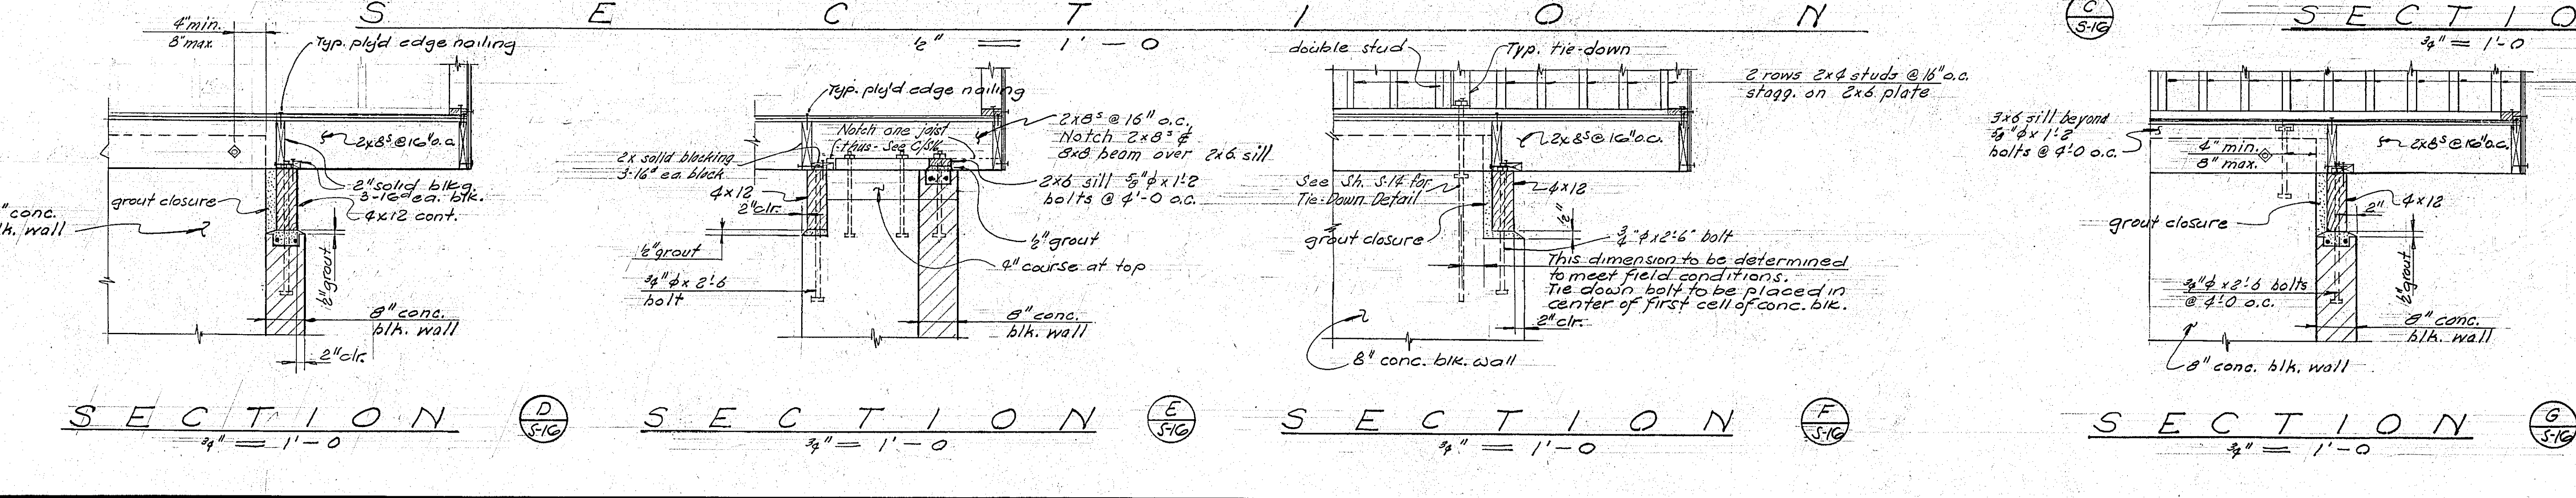 S E C T I O N
½" = 1'-0
C
S-16
S E C T I O
¾" = 1'-0
4" min.
8" max.
Typ. ply'd edge nailing
2x8s @ 16" o.c.
2" solid blkg.
3-16d ea. blk.
4x12 cont.
grout closure
" conc.
lk. wall
½" grout
8" conc.
blk. wall
2" clr.
S E C T I O N
D
S-16
¾" = 1'-0
Typ. ply'd edge nailing
Notch one joist
thus - See C/S16
2x8s @ 16" o.c.
Notch 2x8s &
8x8 beam over 2x6 sill
2x solid blocking
3-16d ea. block
4x12
2" clr.
2x6 sill ⅝"φ x 1'-2
bolts @ 4'-0 o.c.
½" grout
½" grout
4" course at top
¾"φ x 2'-6
bolt
8" conc.
blk. wall
S E C T I O N
E
S-16
¾" = 1'-0
double stud
Typ. tie-down
2 rows 2x4 studs @ 16" o.c.
stagg. on 2x6 plate
2x8s @ 16" o.c.
See Sh. S-14 for
Tie-Down Detail
4x12
½"
grout closure
¾"φ x 2'-6" bolt
This dimension to be determined
to meet field conditions.
Tie down bolt to be placed in
center of first cell of conc. blk.
2" clr.
8" conc. blk. wall
S E C T I O N
F
S-16
¾" = 1'-0
3x6 sill beyond
⅝"φ x 1'-2
bolts @ 4'-0 o.c.
4" min.
8" max.
2x8s @ 16" o.c.
4x12
2"
grout closure
½" grout
¾"φ x 2'-6 bolts
@ 4'-0 o.c.
8" conc.
blk. wall
8" conc. blk. wall
S E C T I O N
G
S-16
¾" = 1'-0